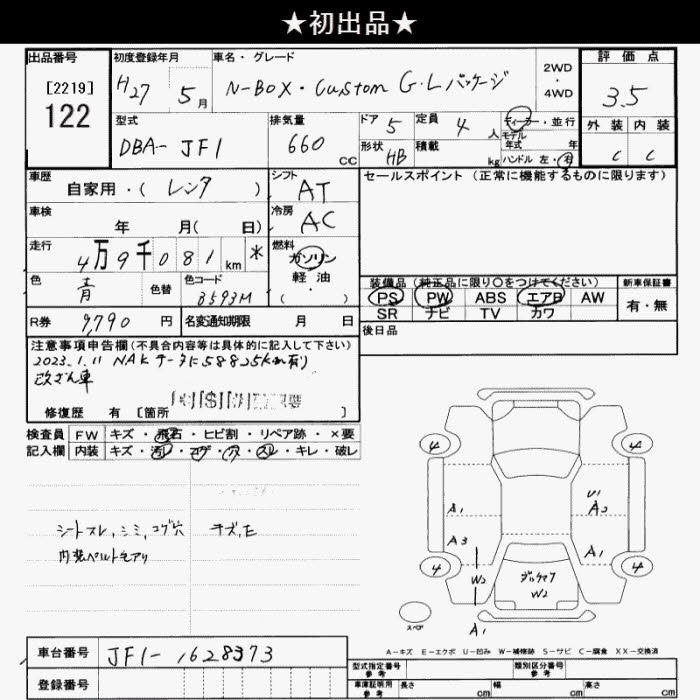 ★初出品★
出品番号 初度登録年月 車名・グレード 2WD・4WD 評価点
[2219]
122
H27 5月
N-BOX・Custom G・Lパッケージ
3.5
型式 排気量 ドア 5 定員 4人 ディーラー・並行
DBA-JF1 660cc
モデル年式 年
形状 HB 積載 kg ハンドル 左・右
外装 内装
C C
車歴 自家用・(レンタ) シフト AT
セールスポイント(正常に機能するものに限ります)
車検 年 月( 日) 冷房 AC
走行 4万9千081km * 燃料 ガソリン・軽油・( )
色 青 色替 色コード B593M
装備品(純正品に限り○をつけてください) 新車保証書
PS PW ABS エアB AW 有・無
SR ナビ TV カワ
R券 9,790円 名変通知期限 月 日
後日品
注意事項申告欄(不具合内容等は具体的に記入して下さい)
2023.1.11 NAKデータに58825Km有り
改ざん車
修復歴 有 [箇所 ]
検査員 FW キズ・飛石・ヒビ割・リペア跡・×要
記入欄 内装 キズ・汚レ・コゲ・穴・スレ・キレ・破レ
シートスレ,シミ,コゲ穴 キズ,E
内装ベルト毛アリ
4 4
A1 U1
A2
A3 A1
4 4
W2 W2
スペア A1
A-キズ E-エクボ U-凹み W-補修跡 S-サビ C-腐食 XX-交換済
車台番号 JF1-1628373
登録番号
型式指定番号 参考 類別区分番号 参考
車庫証明用 参考 長さ cm 幅 cm 高さ cm